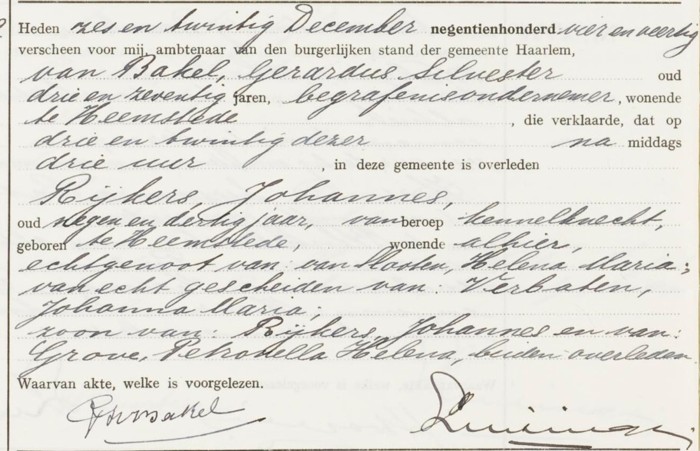 Heden zes en twintig December negentienhonderd vier en veertig
verscheen voor mij, ambtenaar van den burgerlijken stand der gemeente Haarlem,
van Bakel, Gerardus Silvester oud
drie en zeventig jaren, begrafenisondernemer, wonende
te Heemstede, die verklaarde, dat op
drie en twintig dezer na middags
drie uur, in deze gemeente is overleden
Rijkers, Johannes,
oud negen en dertig jaar, van beroep kennelknecht,
geboren te Heemstede, wonende alhier,
echtgenoot van: van Maaten, Helena Maria;
van echt gescheiden van: Verbaten,
Johanna Maria;
zoon van: Rijkers, Johannes en van:
Grove, Petronella Helena, beiden overleden.
Waarvan akte, welke is voorgelezen.
GSvBakel